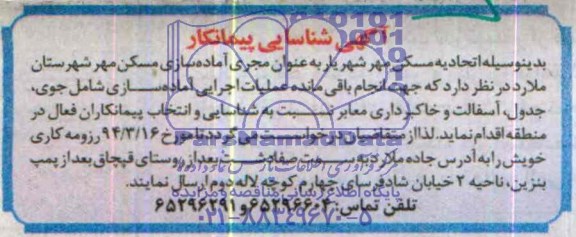 آگهی شناسایی پیمانکار
بدینوسیله اتحادیه مسکن مهر شهریار به عنوان مجری آماده سازی مسکن مهر شهرستان
ملارد در نظر دارد که جهت انجام باقی مانده عملیات اجرایی آماده سازی شامل جوی،
جدول، آسفالت و خاکبرداری معابر نسبت به شناسایی و انتخاب پیمانکاران فعال در
منطقه اقدام نماید. لذا از متقاضیان درخواست می گردد تا مورخ ۹۴/۳/۱۶ رزومه کاری
خویش را به آدرس جاده ملارد به سمت صفادشت بعد از روستای قپچاق بعد از پمپ
بنزین، ناحیه ۲ خیابان شادفر سای چهارم کوچه لاله دوم ارسال نمایند.
تلفن تماس: ۶۵۲۹۶۶۰۴ و ۶۵۲۹۶۲۹۱
ParsNamadData
پایگاه اطلاع رسانی مناقصه و مزایده
۰۲۱-۸۸۳۴۹۶۷۰-۵